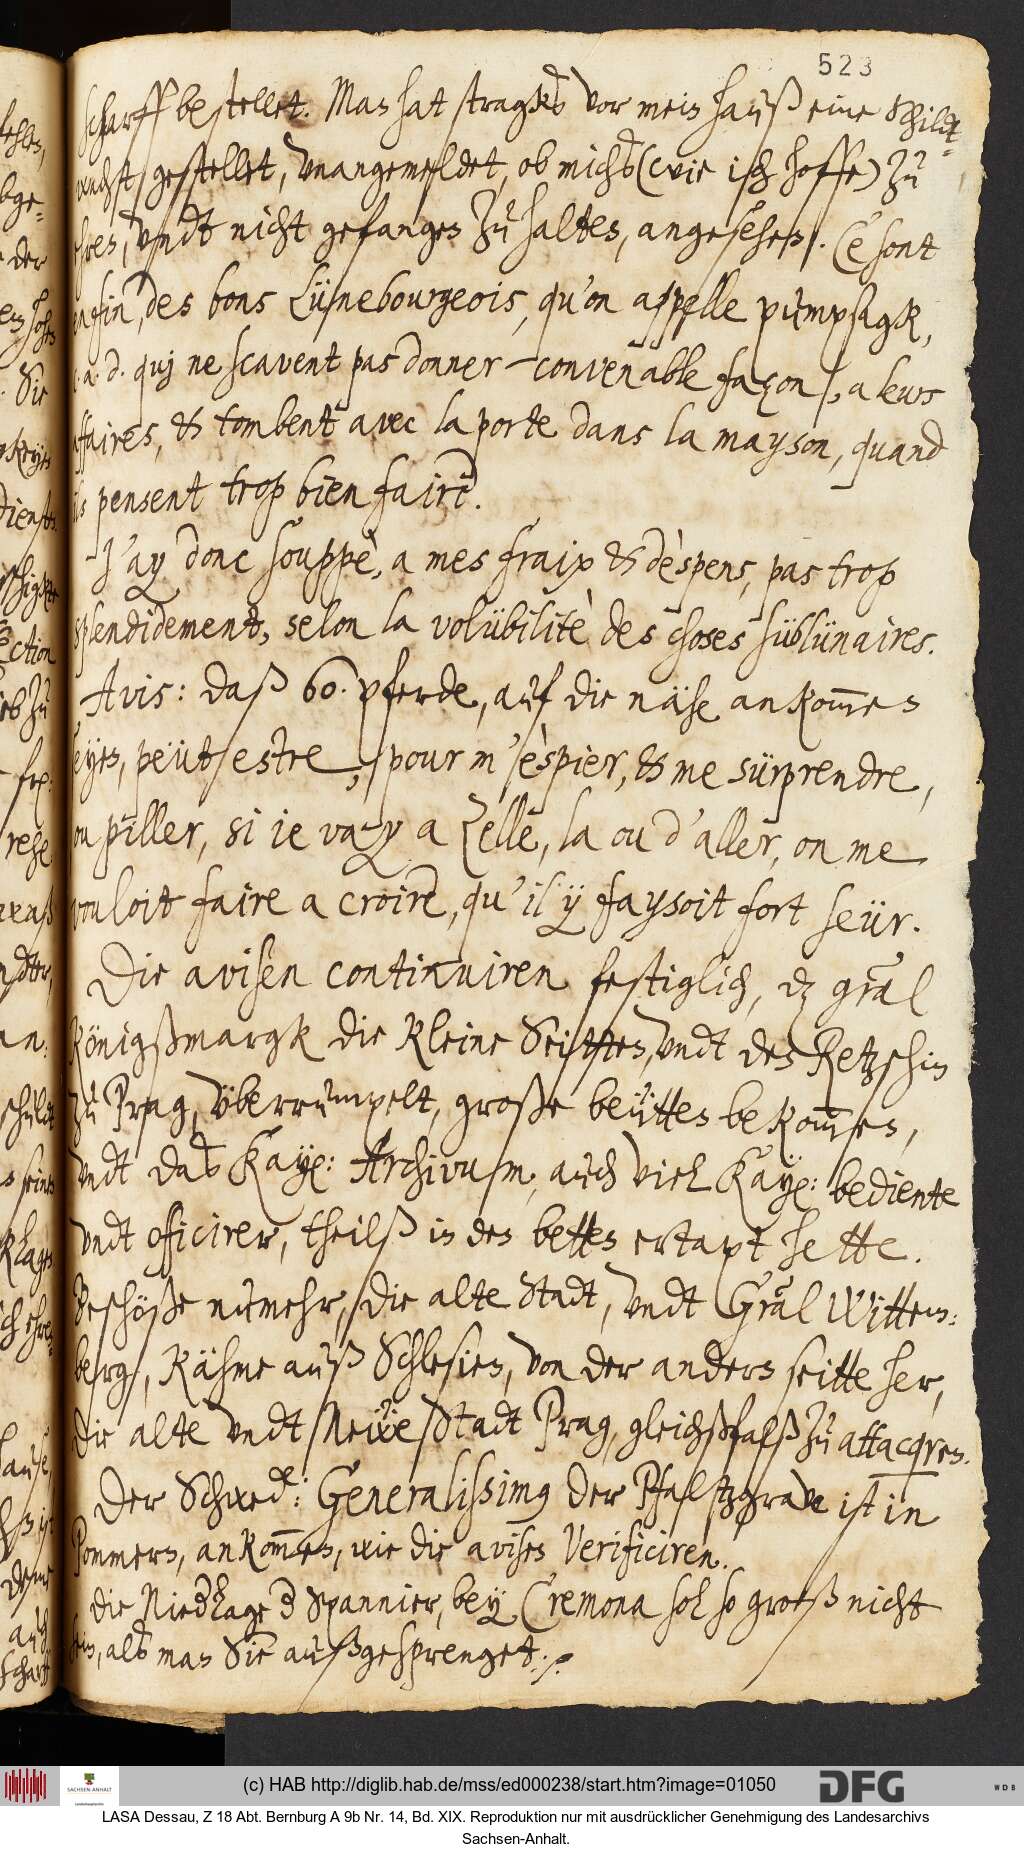 523
scharff bestellet. Man hat stragks vor mein hauß eine Schildt-
wacht gestellet, vnangemeldet, ob michs (wie ich hoffe) zu
ehren, vndt nicht gefangen zu halten, angesehen. Ce sont
enfin, des bons Lünebourgeois, qu'on appelle pumpsagk,
c. a. d. quj ne scavent pas donner convenable façon, a leurs
affaires, & tombent avec la porte dans la mayson, quand
ils pensent trop bien faire.
J'ay donc souppè, a mes fraix & dèspens, pas trop
splendidement, selon la volübilitè des choses süblünaires.
Avis: daß 60. pferde, auf die nähe ankommen
seyen, peüt estre, pour m'èspier, & me sürprendre,
ou piller, si je vay a Zelle, la ou d'aller, on me
vouloit faire a croire, qu'il y faysoit fort seür.
Die avisen continuiren festiglich, dz Gral
Königßmargk die kleine Seitten, vndt den Retzschin
zu Prag, vberrumpelt, große beütten bekommen,
vndt das Kay: Archivum, auch viel Kay: bediente
vndt officirer, theilß in den betten ertapt hette.
Beschöße numehr, die alte Stadt, vndt Gral Wittem-
berg, kähme auß Schlesien, von der andern seitte her,
die alte vndt Neüe Stadt Prag, gleichßfalß zu attacqren.
Der Schwed: Generalissimg der Pfaltzgrave ist in
Pommern, ankommen, wie die avisen verificiren.
die Niederlage d Spannier, bey Cremona sol so groß nicht
sein, als man Sie außgesprenget.
(c) HAB http://diglib.hab.de/mss/ed000238/start.htm?image=01050
SACHSEN-ANHALT
DFG
WDB
LASA Dessau, Z 18 Abt. Bernburg A 9b Nr. 14, Bd. XIX. Reproduktion nur mit ausdrücklicher Genehmigung des Landesarchivs
Sachsen-Anhalt.